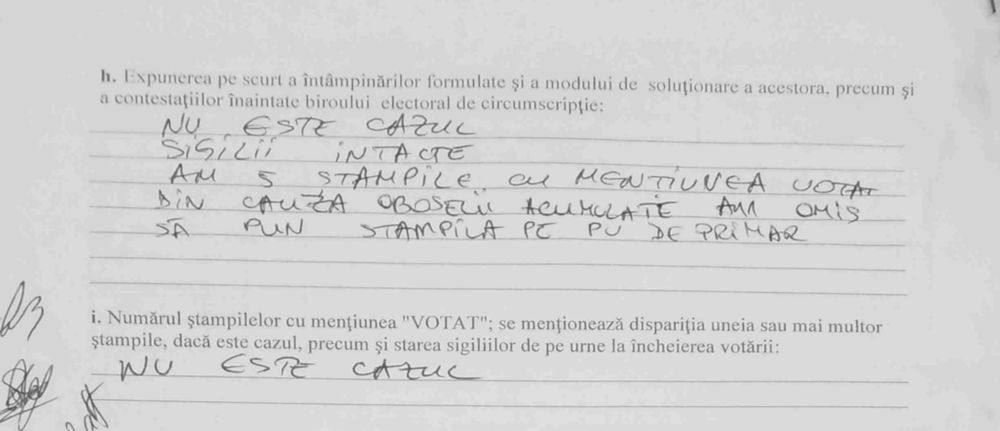 h. Expunerea pe scurt a întâmpinărilor formulate şi a modului de soluţionare a acestora, precum şi
a contestaţiilor înaintate biroului electoral de circumscripţie:
NU ESTE CAZUL
SIGILII INTACTE
AM 5 STAMPILE CU MENTIUNEA VOTAT
DIN CAUZA OBOSELII ACUMULATE AM OMIS
SĂ PUN STAMPILA PE PV DE PRIMAR
i. Numărul ştampilelor cu menţiunea "VOTAT"; se menţionează dispariţia uneia sau mai multor
ştampile, dacă este cazul, precum şi starea sigiliilor de pe urne la încheierea votării:
NU ESTE CAZUL